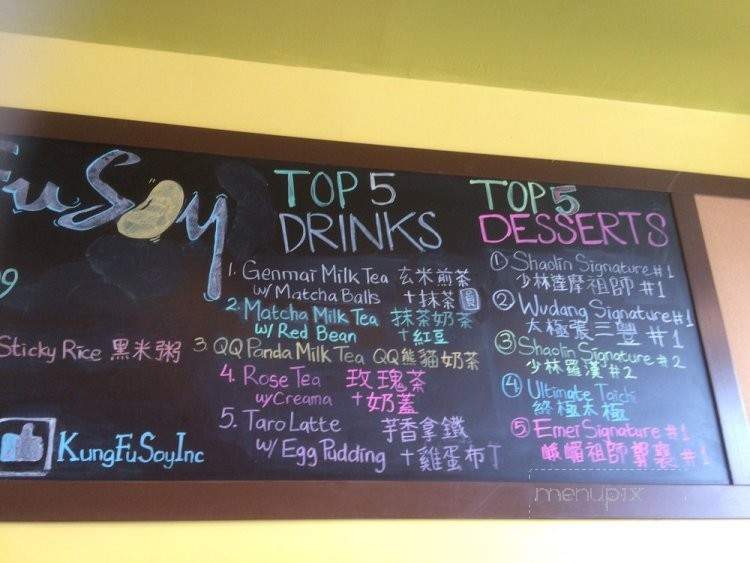 Fu Soy
9
Sticky Rice 黑米粥
KungFuSoyInc
TOP 5
DRINKS
1. Genmai Milk Tea 玄米煎茶
w/ Matcha Balls +抹茶圓
2. Matcha Milk Tea 抹茶奶茶
w/ Red Bean +紅豆
3. QQ Panda Milk Tea QQ熊貓奶茶
4. Rose Tea 玫瑰茶
w/ Creama +奶蓋
5. Taro Latte 芋香拿鐵
w/ Egg Pudding +雞蛋布丁
TOP 5
DESSERTS
① Shaolin Signature #1
少林達摩祖師 #1
② Wudang Signature #1
太極張三豐 #1
③ Shaolin Signature #2
少林羅漢 #2
④ Ultimate Taichi
終極太極
⑤ Emei Signature #1
峨嵋祖師 #1
menupix